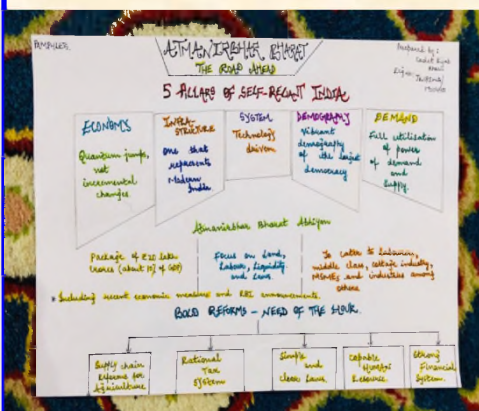 PAMPHLET
ATMANIRBHAR BHARAT
THE ROAD AHEAD
Prepared by :
Cadet
5 PILLARS OF SELF-RELIANT INDIA
ECONOMY
Quantum jumps,
not
incremental
changes
INFRA-
STRUCTURE
One that
represents
Modern
India
SYSTEM
Technology
driven
DEMOGRAPHY
Vibrant
demography
of the largest
democracy
DEMAND
Full utilisation
of power
of demand
and
supply.
Atmanirbhar Bharat Abhiyan
Package of ₹20 lakh
crores (about 10% of GDP)
Focus on Land,
Labour, Liquidity
and Laws.
To cater to labourers,
middle class, cottage industry,
MSME and industries among
others
* Including recent economic measures and RBI announcements.
BOLD REFORMS - NEED OF THE HOUR
Supply chain
Reforms for
Agriculture
Rational
Tax
System
Simple
and
clear Laws.
Capable
Human
Resource.
Strong
Financial
System.